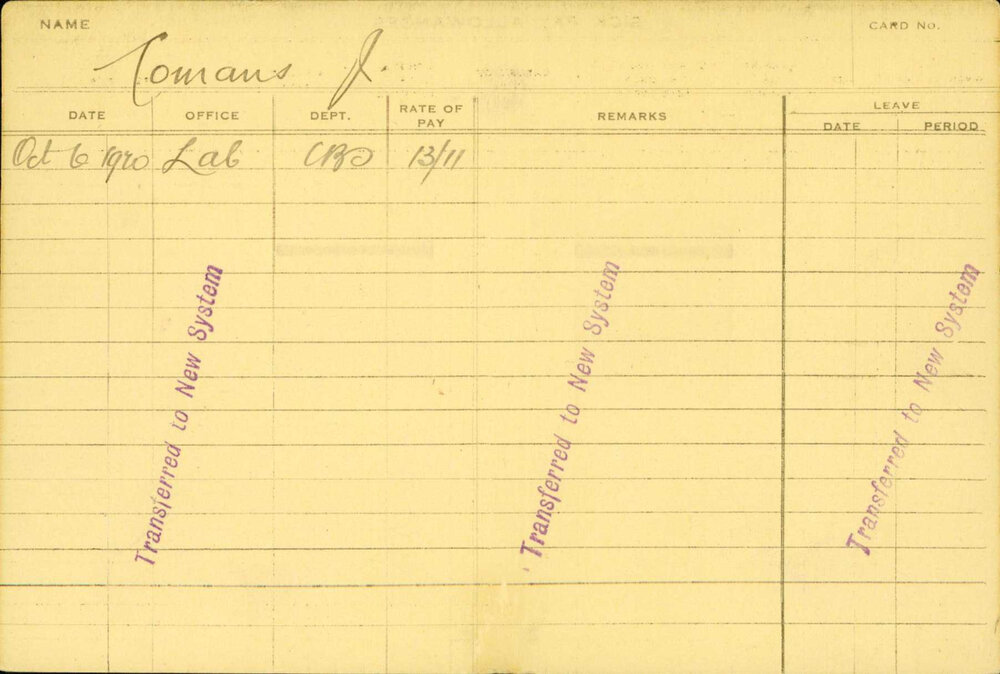 NAME
CARD NO.
Comans J.
DATE OFFICE DEPT. RATE OF PAY REMARKS LEAVE
DATE PERIOD
Oct 6 1920 Lab 13/11
Transferred to New System
Transferred to New System
Transferred to New System